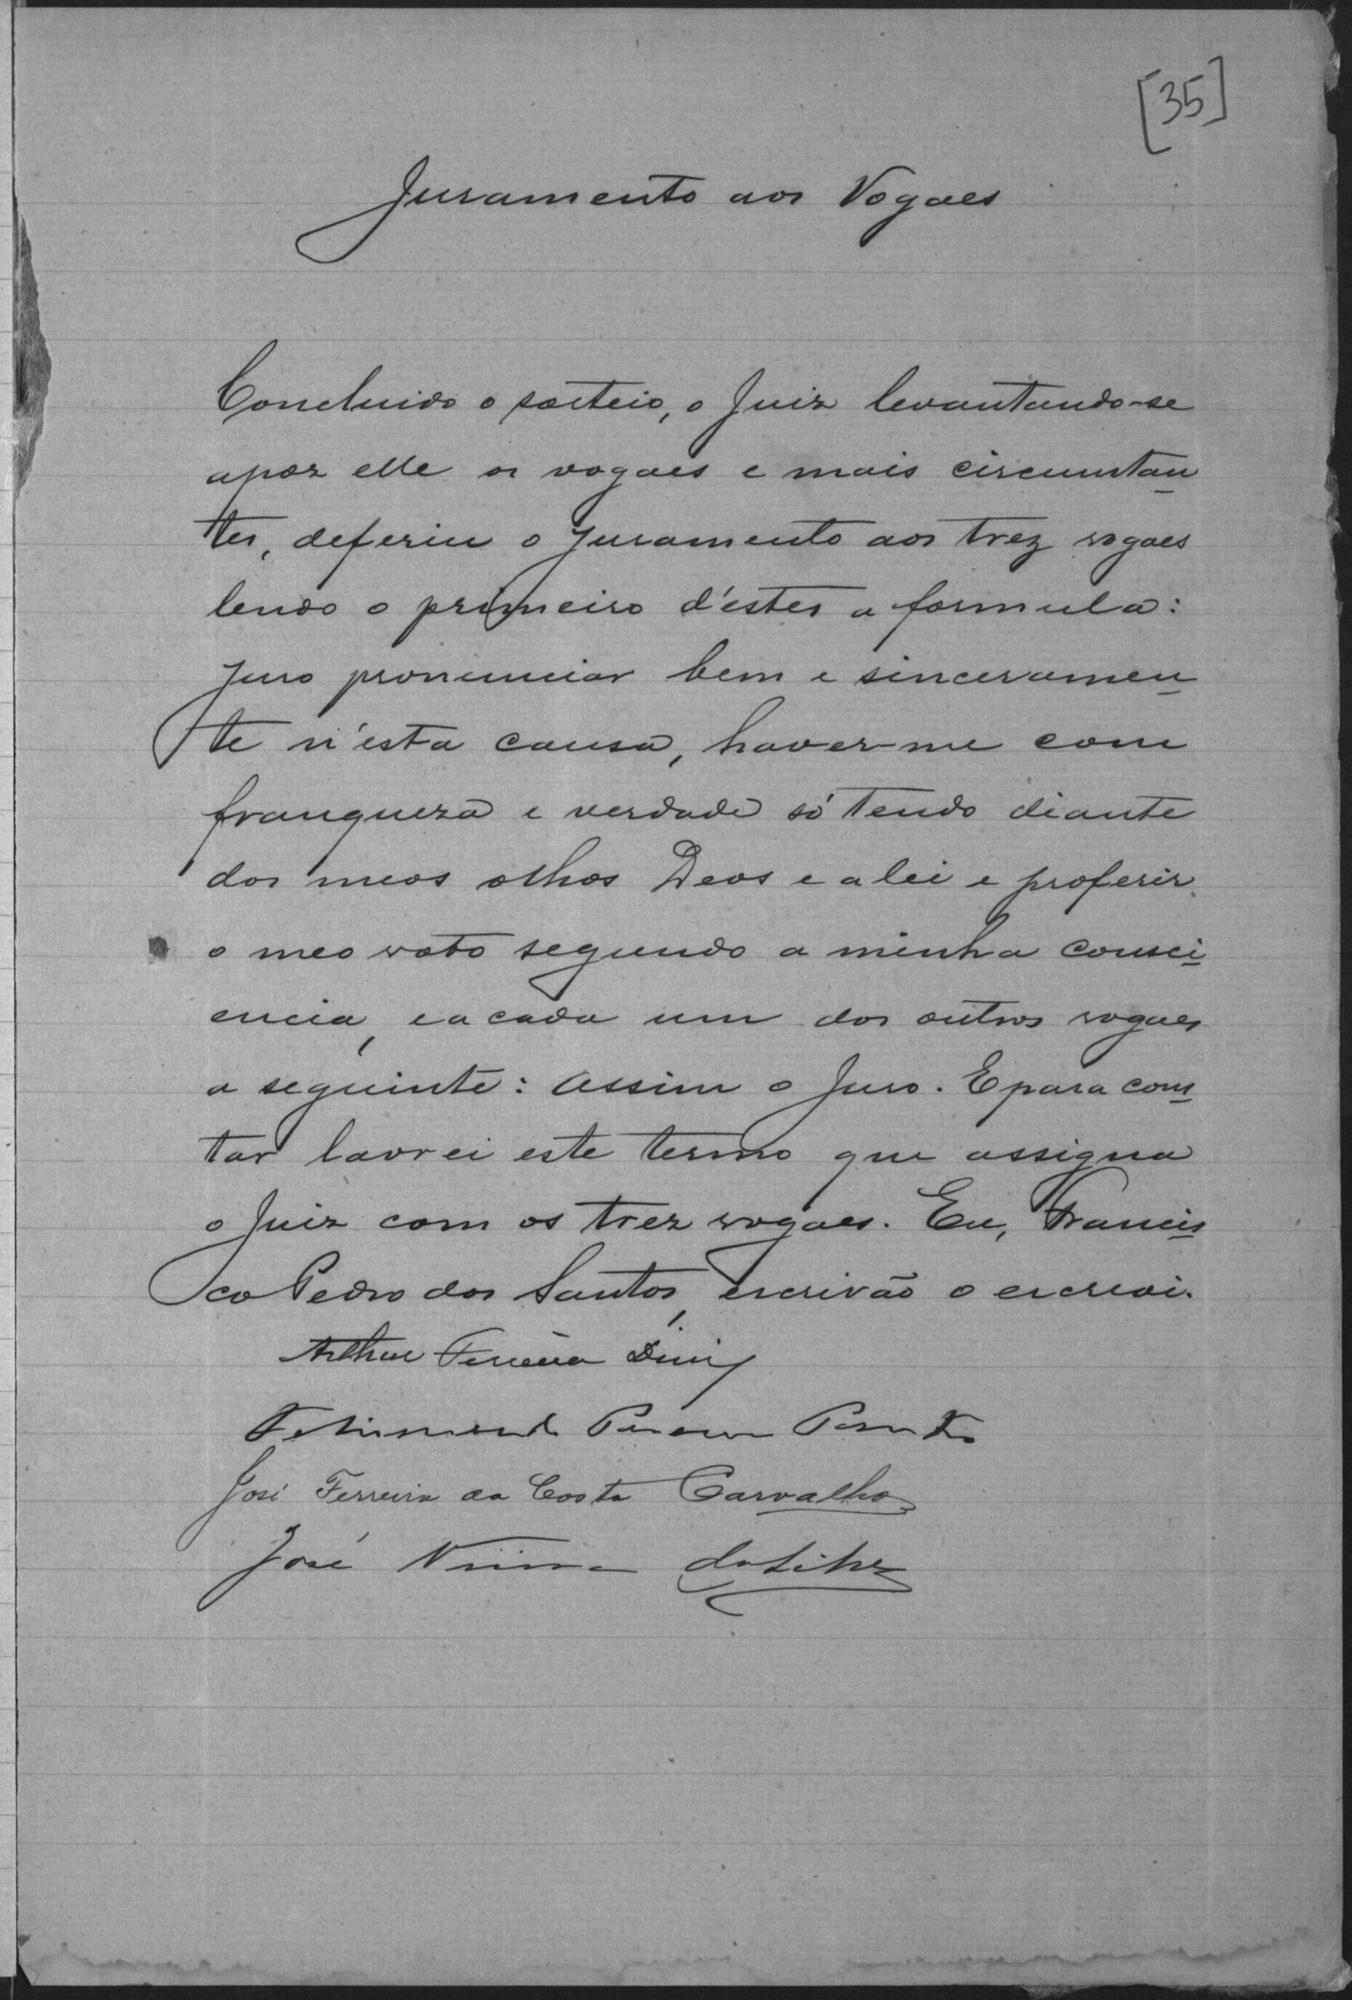 [35]
Juramento aos Vogaes
Concluido o sorteio, o Juiz levantando-se
apoz elle os vogaes e mais circunstan
tes, deferiu o juramento aos trez vogaes
lendo o primeiro d'estes a formula:
Juro pronunciar bem e sinceramen
te n'esta causa, haver-me com
franqueza e verdade só tendo diante
dos meos olhos Deos e a lei e proferir
o meo voto segundo a minha consci
encia, e a cada um dos outros vogaes
a seguinte: Assim o Juro. E para cons
tar lavrei este termo que assigna
o Juiz com os trez vogaes. Eu, Francis
co Pedro dos Santos, escrivão o escrevi.
Arthur Ferreira Diniz
José Ferreira da Costa Carvalho
José